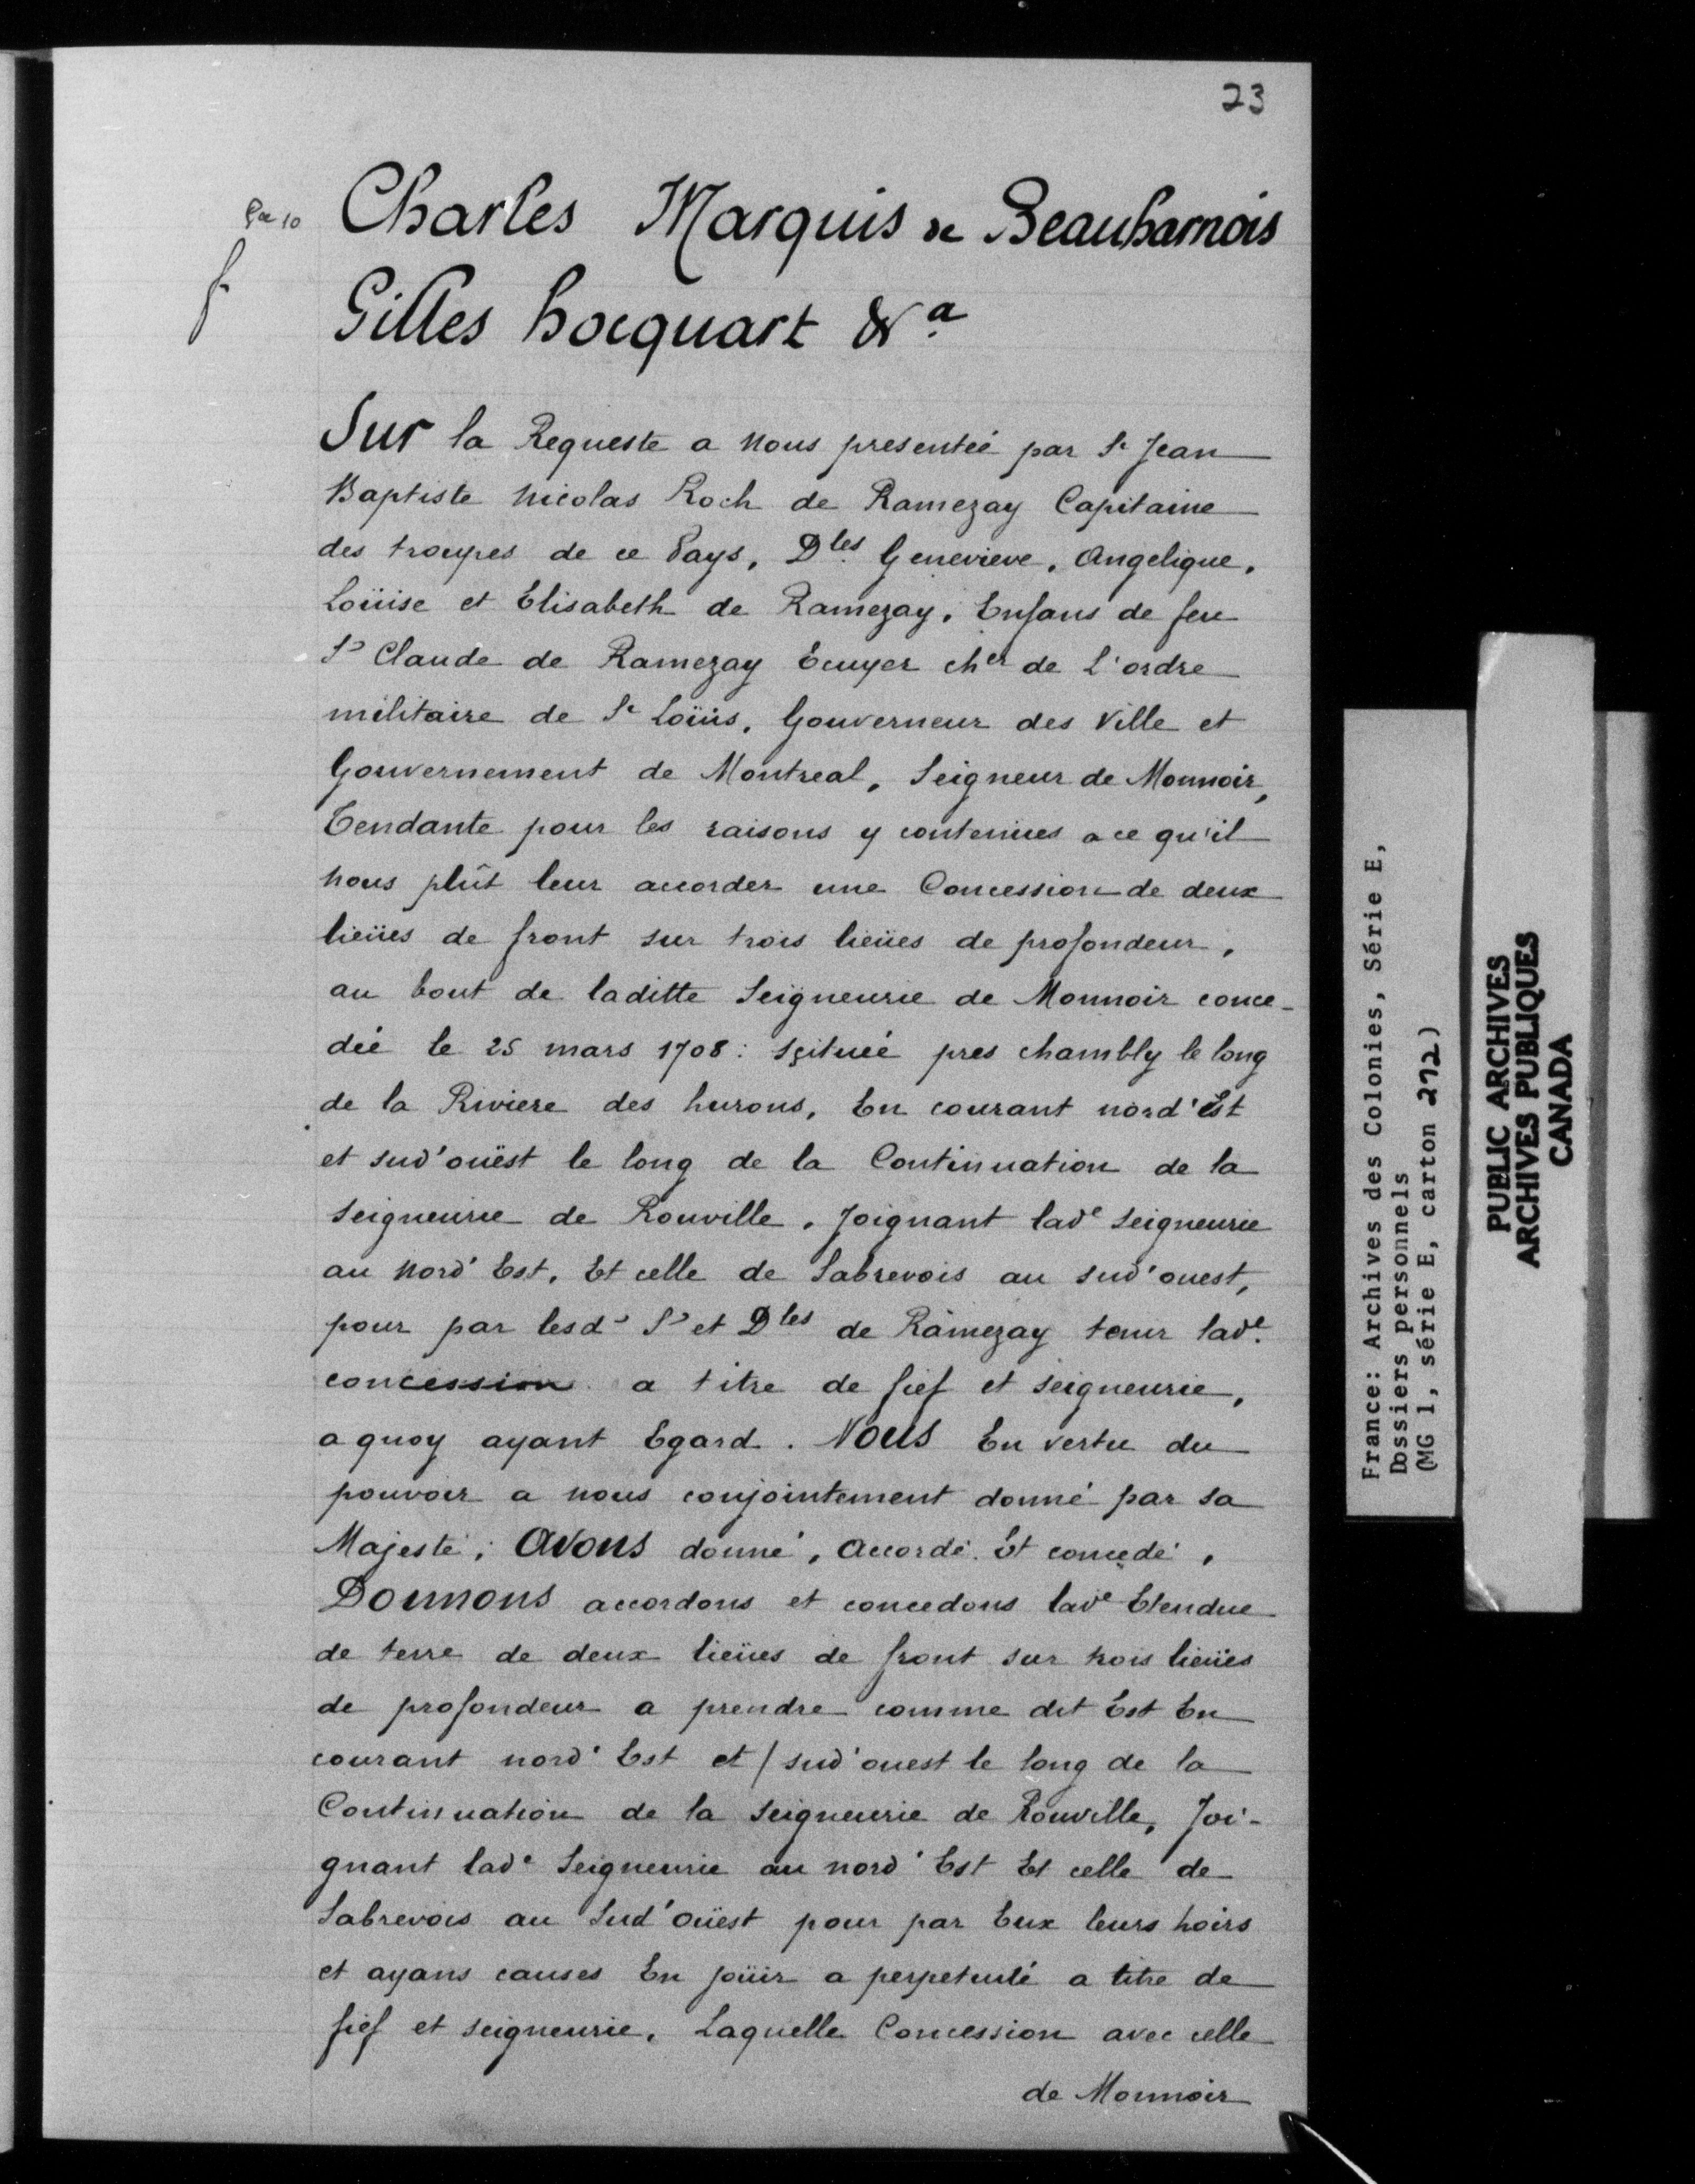 23
Charles Marquis de Beauharnois
Gilles hocquart &a.
Sur la Requeste a Nous presenteé par Sr Jean
Baptiste Nicolas Roch de Ramezay Capitaine
des troupes de ce Pays, Dles Genevieve, Angelique,
Loüise et Elisabeth de Ramezay, Enfans de feu
Sr Claude de Ramezay Ecuyer cher de L'ordre
militaire de St Loüis, Gouverneur des Ville et
Gouvernement de Montreal, Seigneur de Monnoir,
Tendante pour les raisons y contenües a ce qu'il
nous plût leur accorder une Concession de deux
lieües de front sur trois lieües de profondeur,
au bout de laditte Seigneurie de Monnoir conce-
deé le 25 mars 1708: sçitueé pres chambly le long
de la Riviere des hurons, En courant nord'Est
et sud'oüest le long de la Continuation de la
seigneurie de Rouville, Joignant lade seigneurie
au Nord'Est, Et celle de Sabrevois au sud'ouest,
pour par lesds Sr et Dles de Ramezay tenir lade.
concession a titre de fief et seigneurie,
a quoy ayant Egard. Nous En vertu du
pouvoir a nous conjointement donné par sa
Majesté; avons donné, accordé. Et concedé,
Donnons accordons et concedons lade Etendue
de terre de deux lieües de front sur trois lieües
de profondeur a prendre comme dit Est En
courant nord'Est et / sud'ouest le long de la
Continuation de la Seigneurie de Rouville, Joi-
gnant lade Seigneurie au nord'Est Et celle de
Sabrevois au Sud'Oüest pour par Eux leurs hoirs
et ayans causes En joüir a perpetuité a titre de
fief et seigneurie, Laquelle Concession avec celle
de Monnoir
France: Archives des Colonies, Série E,
Dossiers personnels
(MG 1, série E, carton 272)
PUBLIC ARCHIVES
ARCHIVES PUBLIQUES
CANADA